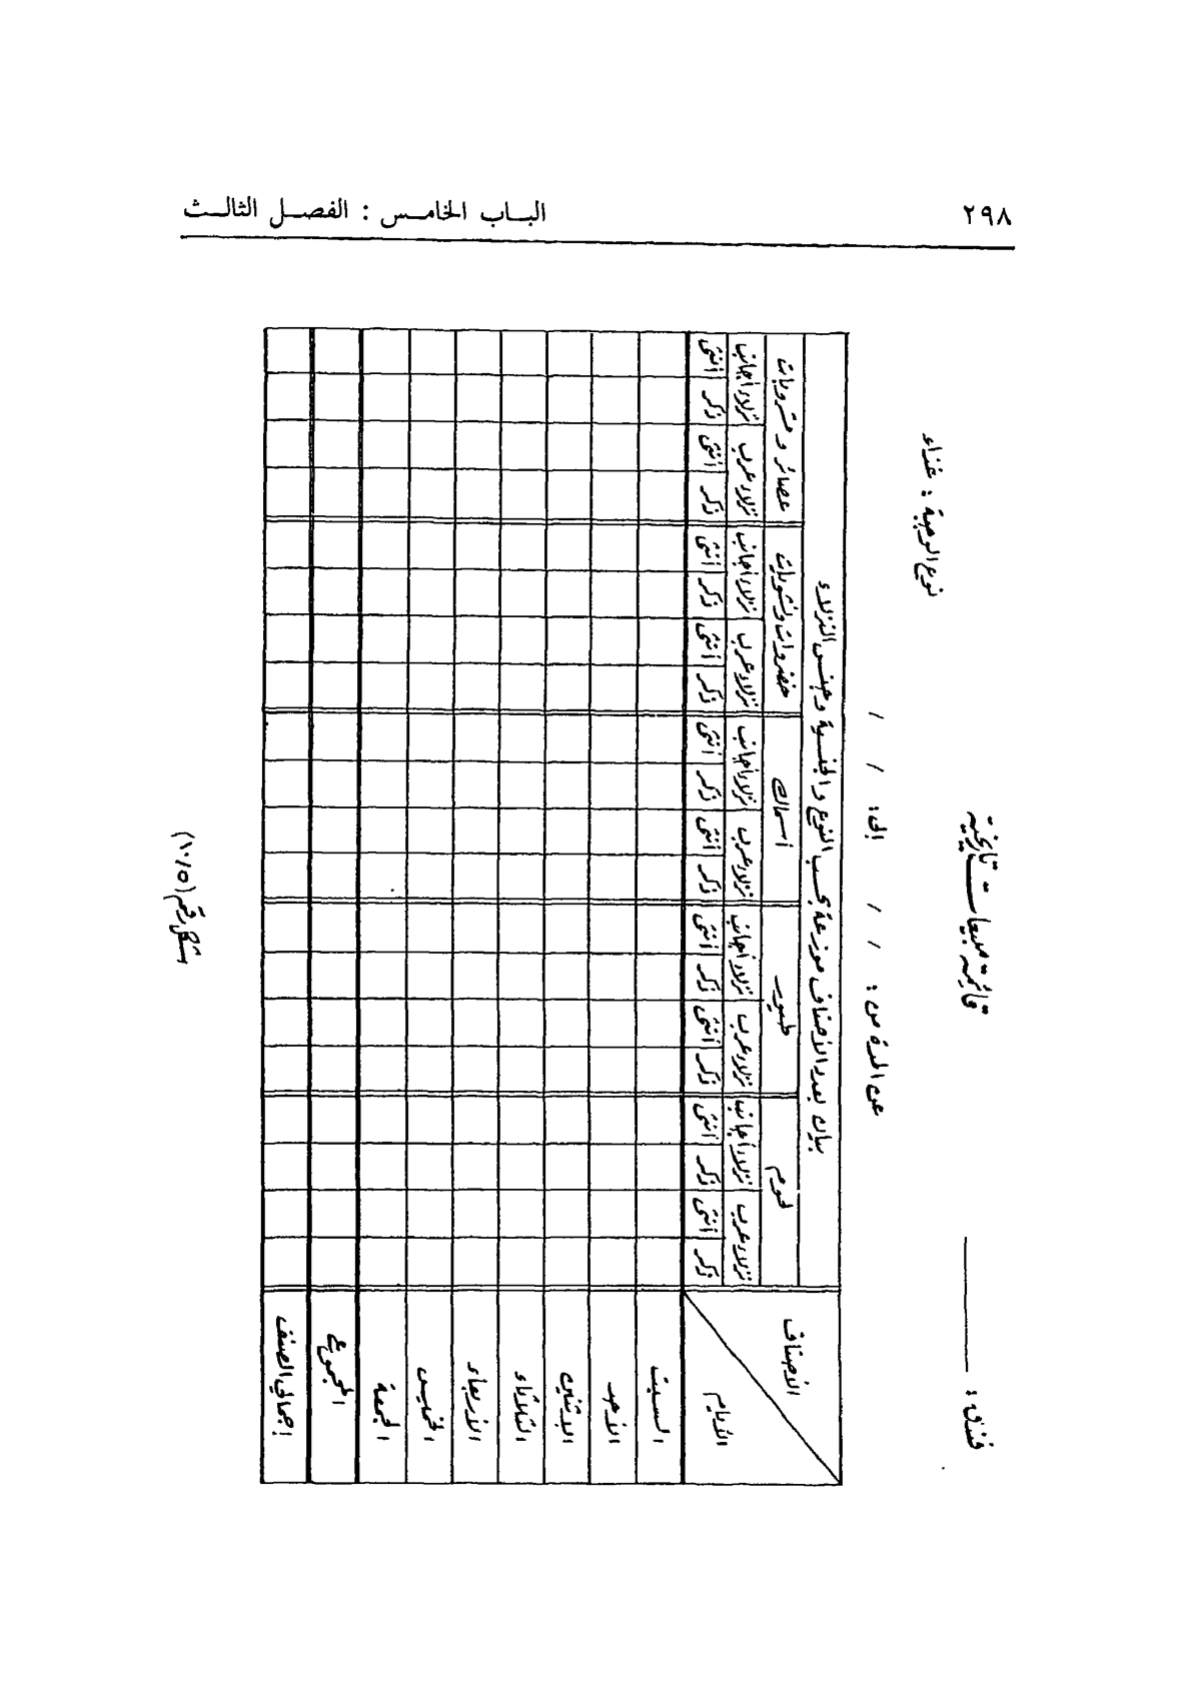 ٢٩٨
البـاب الخامـس : الفصـل الثالـث
فندق : ________
قائمة مبيعات تاريخية
نوع الوجبة : غذاء
عن المدة من : / / إلى : / /
الأصناف
الأيام
بيان بعدد الأصناف موزعة بحسب النوع والجنسية وجنس النزلاء
لحوم
طيور
أسماك
خضروات ونشويات
عصائر ومشروبات
نزلاء عرب
نزلاء أجانب
نزلاء عرب
نزلاء أجانب
نزلاء عرب
نزلاء أجانب
نزلاء عرب
نزلاء أجانب
نزلاء عرب
نزلاء أجانب
ذكر أنثى ذكر أنثى ذكر أنثى ذكر أنثى ذكر أنثى ذكر أنثى ذكر أنثى ذكر أنثى ذكر أنثى ذكر أنثى
السبت
الأحد
الإثنين
الثلاثاء
الأربعاء
الخميس
الجمعة
المجموع
إجمالي الصنف
شكل رقم (١٠/٥)